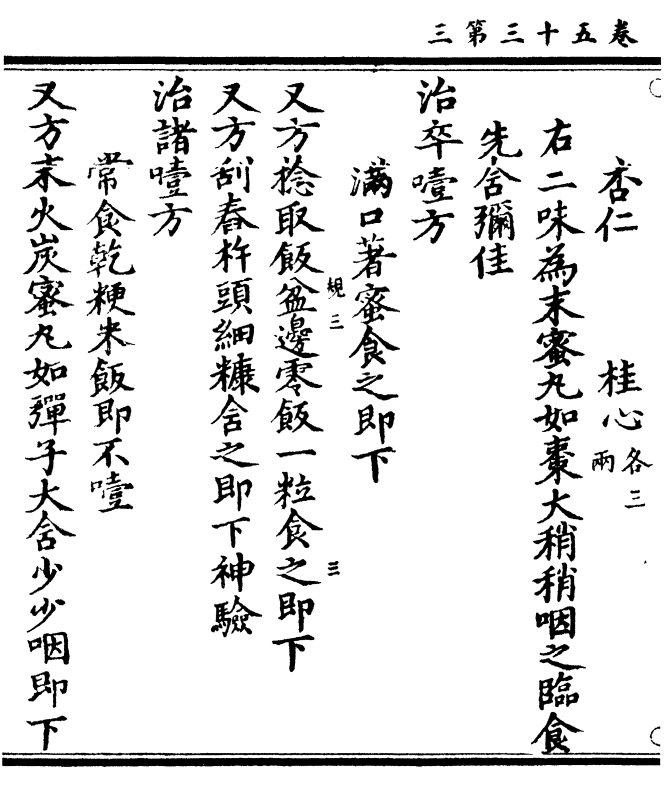 卷五十三第三
杏仁　桂心各三兩
右二味為末蜜丸如棗大稍稍咽之臨食
先含彌佳
治卒噎方
滿口著蜜食之即下
規三
三
又方捻取飯盆邊零飯一粒食之即下
又方刮舂杵頭細糠含之即下神驗
治諸噎方
常食乾粳米飯即不噎
又方末火炭蜜丸如彈子大含少少咽即下